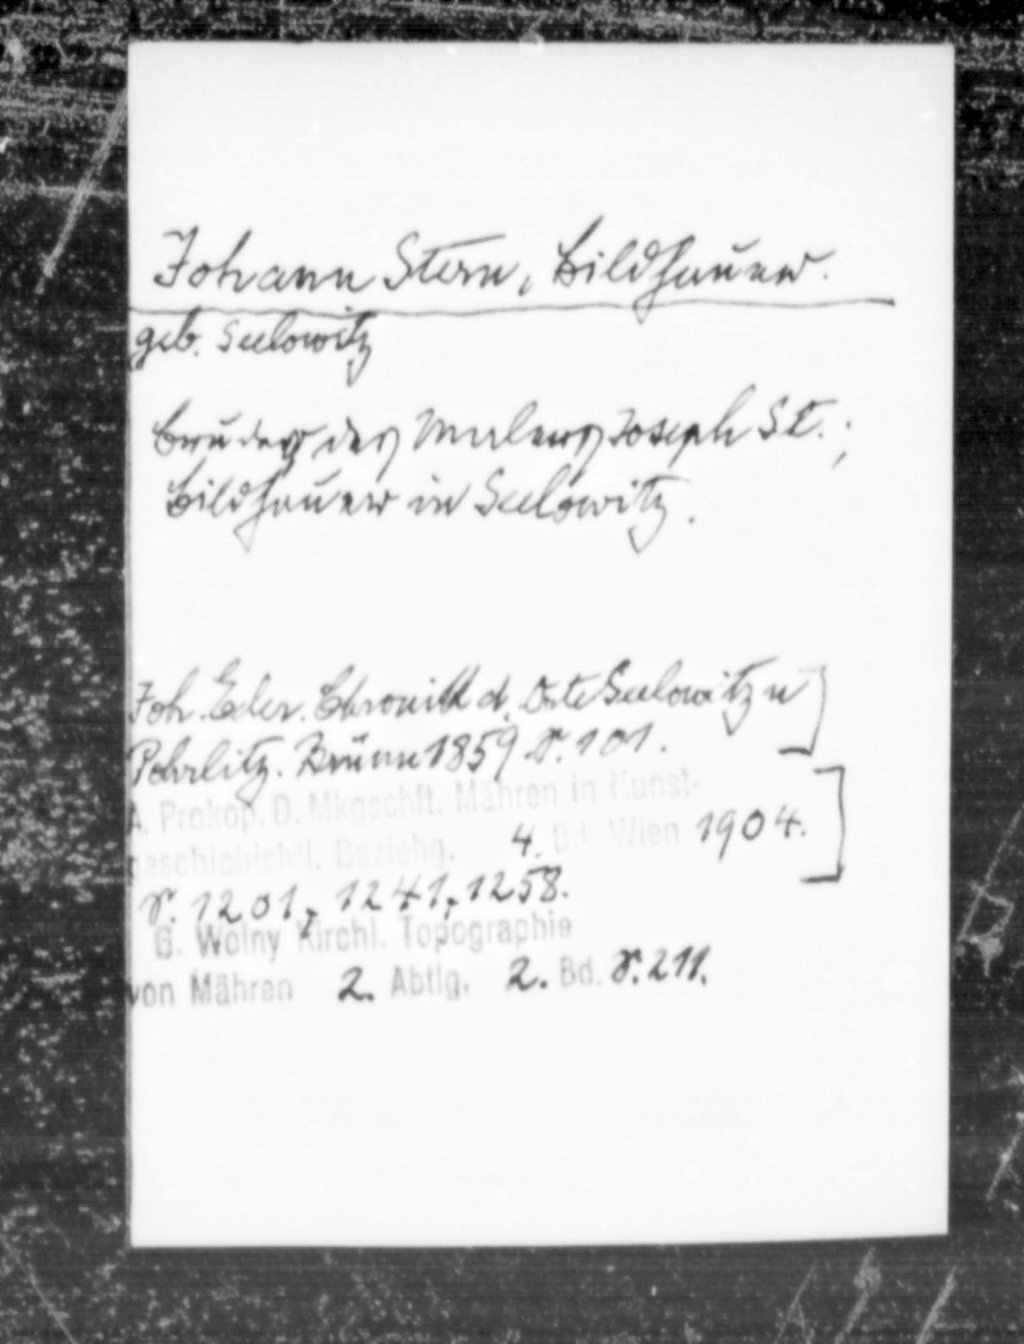 Johann Stern, Bildhauer.
geb. Seelowitz
Bruder des Malers Joseph St.;
Bildhauer in Seelowitz.
Joh. Eder. Chronik d. Orte Seelowitz u
Pohrlitz. Brünn 1859 S. 101.
A. Prokop. D. Mkgschft. Mähren in Kunst-
geschichichtl. Beziehg. 4. Bd. Wien 1904.
S. 1201, 1241, 1258.
G. Wolny Kirchl. Topographie
von Mähren 2. Abtlg. 2. Bd. S. 211.